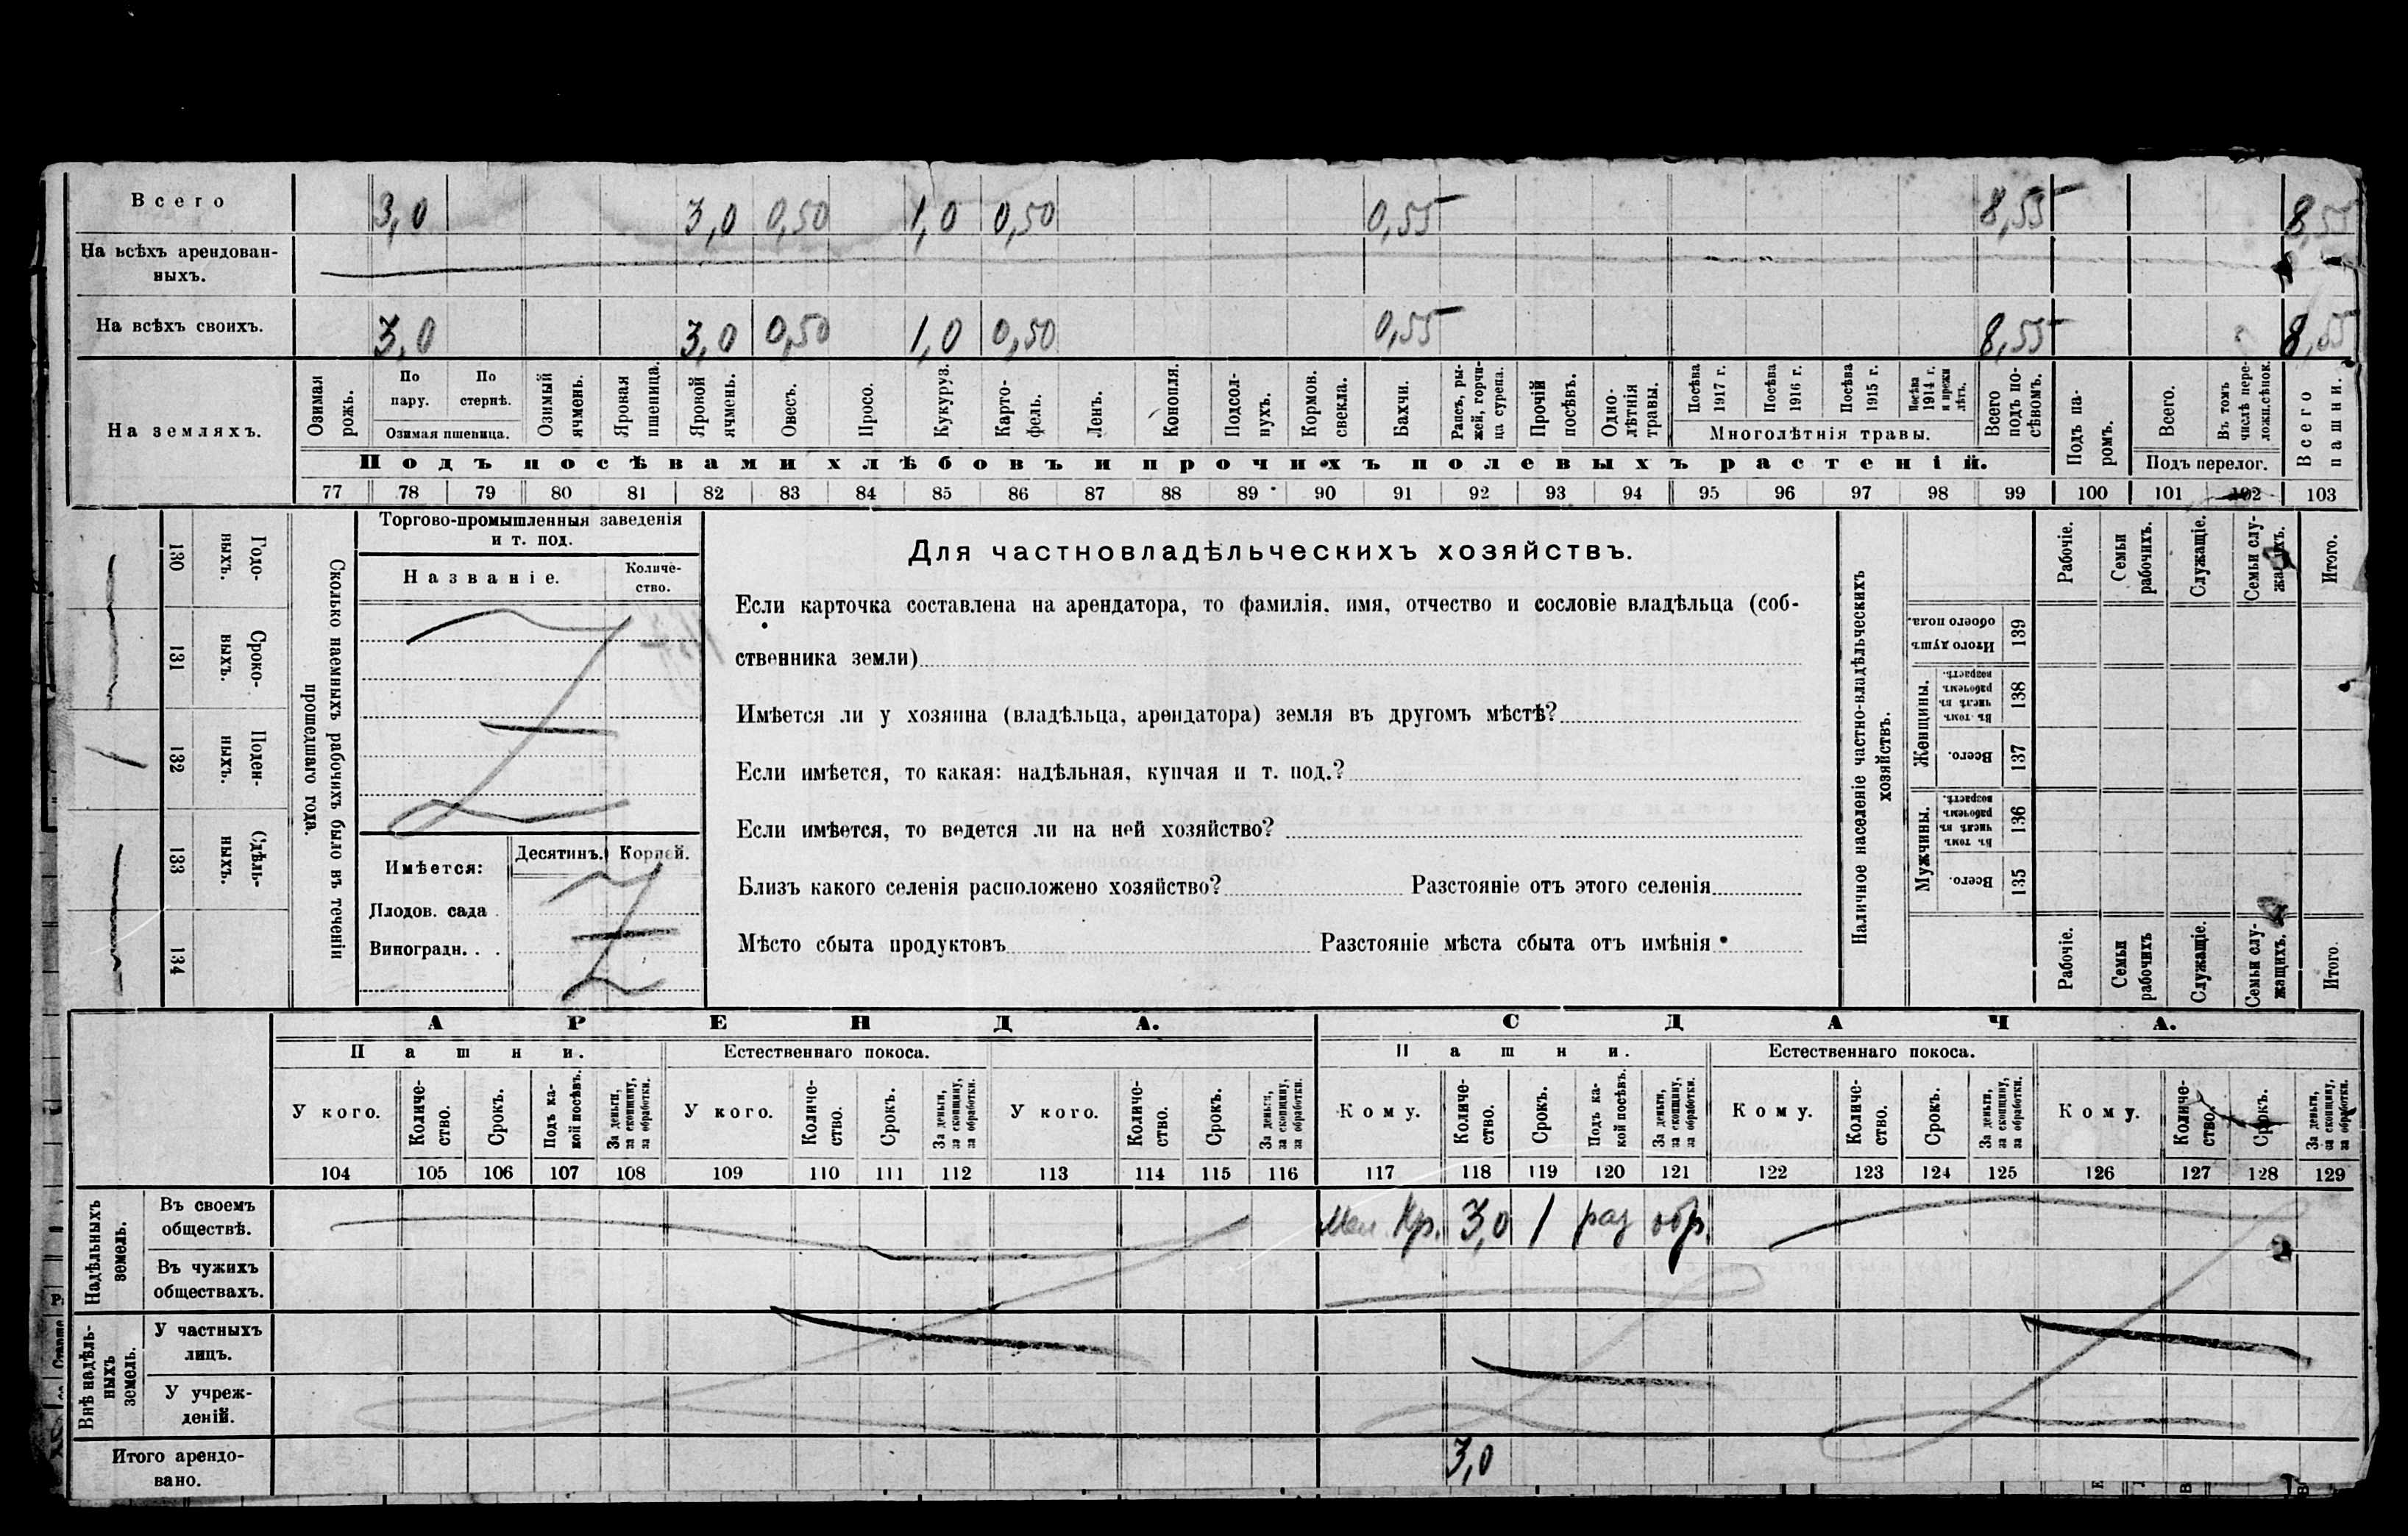 Всего 3,0 3,0 0,50 1,0 0,50 0,55 8,55 8,55
На всѣхъ арендован-
ныхъ.
На всѣхъ своихъ. 3,0 3,0 0,50 1,0 0,50 0,55 8,55 8,55
На земляхъ.
Озимая рожь.
По пару.
По стернѣ.
Озимая пшеница.
Озимый ячмень.
Яровая пшеница.
Яровой ячмень.
Овесъ.
Просо.
Кукуруз.
Карто-
фель.
Ленъ.
Конопля.
Подсол-
нухъ.
Кормов.
свекла.
Бахчи.
Рапсъ, ры-
жей, горчи-
ца сурепа.
Прочій
посѣвъ.
Одно-
лѣтнія
травы.
Посѣва
1917 г.
Посѣва
1916 г.
Посѣва
1915 г.
Посѣва
1914 г.
и прежн
лѣтъ.
Многолѣтнія травы.
Всего
подъ по-
сѣвомъ.
Подъ па-
ромъ.
Всего.
Въ томъ
числѣ пере-
ложн.сѣнок.
Подъ перелог.
Всего
пашни.
Подъ посѣвами хлѣбовъ и прочихъ полевыхъ растеній.
77 78 79 80 81 82 83 84 85 86 87 88 89 90 91 92 93 94 95 96 97 98 99 100 101 102 103
Годо-
ныхъ.
130
Сроко-
выхъ.
131
Поден-
ныхъ.
132
Сдѣль-
ныхъ.
133
134
Сколько наемныхъ рабочихъ было въ теченіи
прошедшаго года.
Торгово-промышленныя заведенія
и т. под.
Названіе.
Количе-
ство.
Имѣется:
Десятинъ. Корней.
Плодов. сада .
Виноградн. . .
Для частновладѣльческихъ хозяйствъ.
Если карточка составлена на арендатора, то фамилія, имя, отчество и сословіе владѣльца (соб-
ственника земли)
Имѣется ли у хозяина (владѣльца, арендатора) земля въ другомъ мѣстѣ?
Если имѣется, то какая: надѣльная, купчая и т. под.?
Если имѣется, то ведется ли на ней хозяйство?
Близъ какого селенія расположено хозяйство? Разстояніе отъ этого селенія
Мѣсто сбыта продуктовъ Разстояніе мѣста сбыта отъ имѣнія
Наличное населеніе частно-владѣльческихъ
хозяйствъ.
Рабочіе.
Семьи
рабочихъ.
Служащіе.
Семьи слу-
жащихъ.
Итого.
Итого душъ
обоего пола.
139
Женщины.
Въ томъ
числѣ въ
рабочемъ
возрастѣ.
138
Всего.
137
Мужчины.
Въ томъ
числѣ въ
рабочемъ
возрастѣ.
136
Всего.
135
Рабочіе.
Семьи
рабочихъ
Служащіе.
Семьи слу-
жащихъ.
Итого.
АРЕНДА. СДАЧА.
Пашни. Естественнаго покоса. Пашни. Естественнаго покоса.
У кого.
Количе-
ство.
Срокъ.
Подъ ка-
кой посѣвъ.
За деньги,
за скопщину,
за обработки.
У кого.
Количе-
ство.
Срокъ.
За деньги,
за скопщину,
за обработки.
У кого.
Количе-
ство.
Срокъ.
За деньги,
за скопщину,
за обработки.
Кому.
Количе-
ство.
Срокъ.
Подъ ка-
кой посѣвъ.
За деньги,
за скопщину,
за обработки.
Кому.
Количе-
ство.
Срокъ.
За деньги,
за скопщину,
за обработки.
Кому.
Количе-
ство.
Срокъ.
За деньги,
за скопщину,
за обработки.
104 105 106 107 108 109 110 111 112 113 114 115 116 117 118 119 120 121 122 123 124 125 126 127 128 129
Надѣльныхъ
земель.
Въ своемъ
обществѣ.
Кр. 3,0 1 раз обр.
Въ чужихъ
обществахъ.
Внѣ надѣль-
ныхъ
земель.
У частныхъ
лицъ.
У учреж-
деній.
Итого арендо-
вано.
3,0